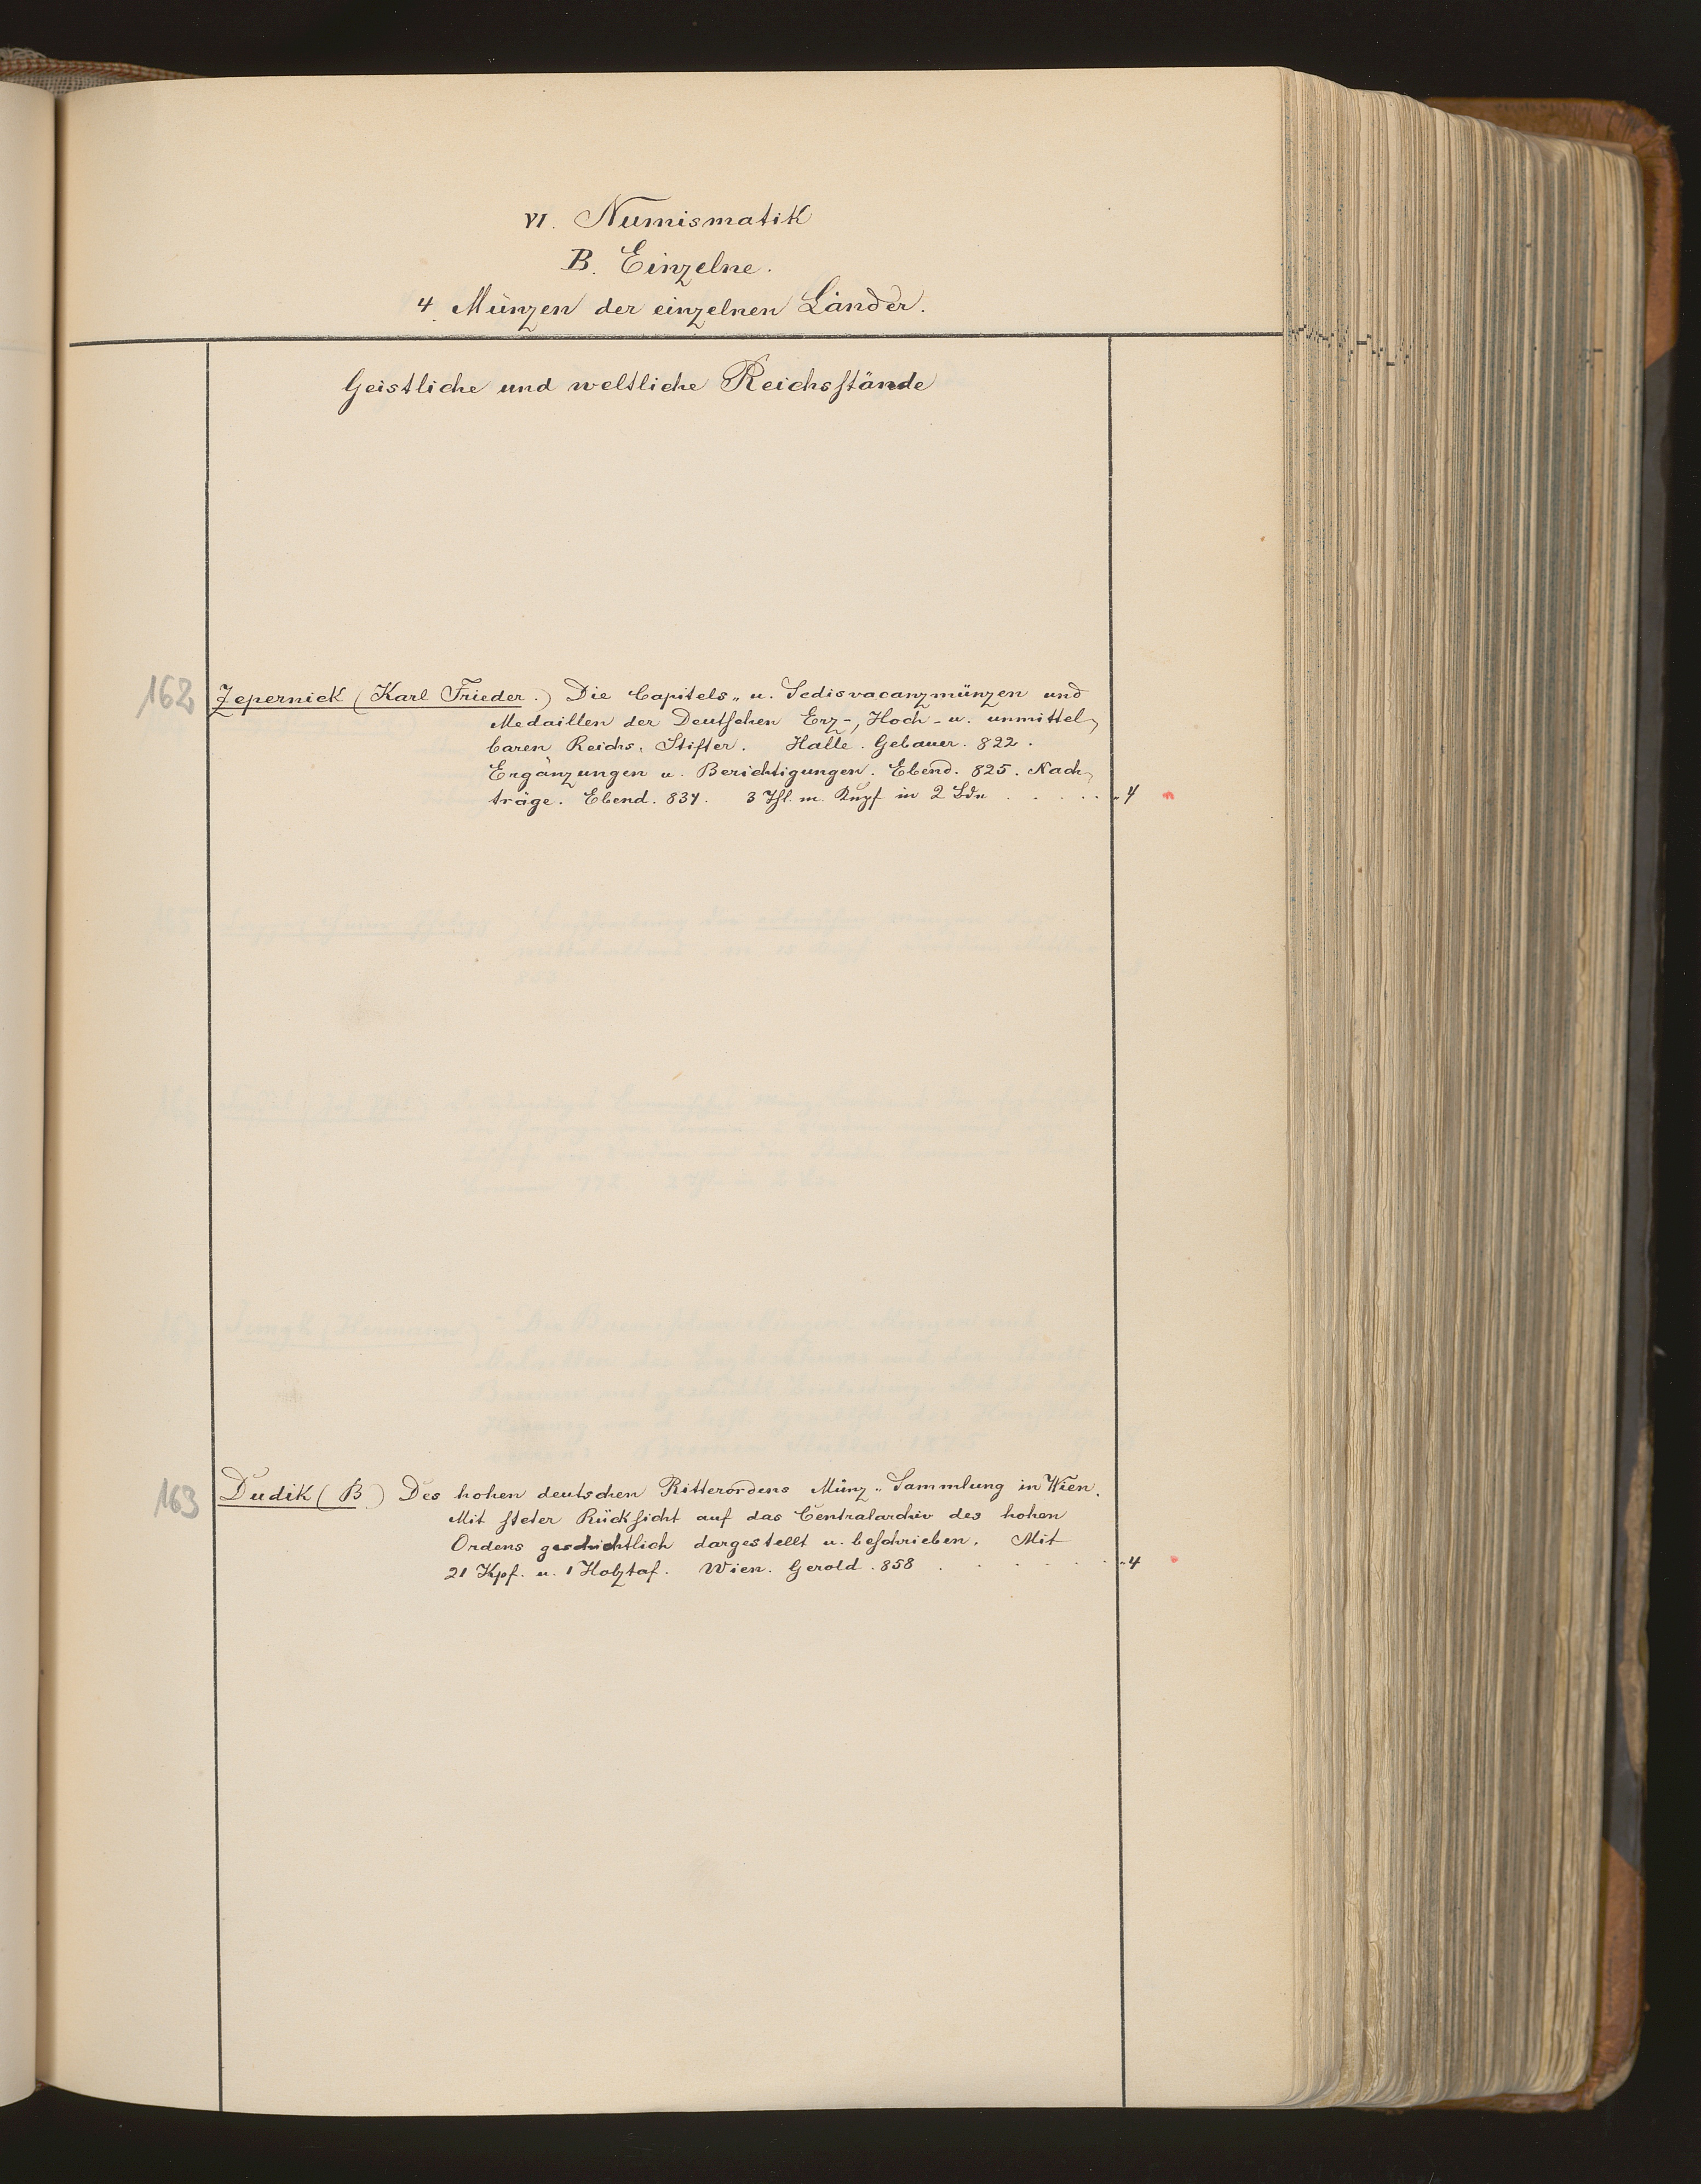 VI. Numismatik
B. Einzelne.
4. Münzen der einzelnen Länder.
Geistliche und weltliche Reichsstände
162 Zepernick (Karl Frieder.) Die Capitels„ u. Sedisvacanzmünzen und
Medaillen der Deutschen Erz-, Hoch- u. unmittel-
baren Reichs. Stifter. Halle. Gebauer. 822.
Ergänzungen u. Berichtigungen. Ebend. 825. Nach-
träge. Ebend. 834. 3 Thl. m. Kupf in 2 Bdn . . . . . „4
163 Dudik (B.) Des hohen deutschen Ritterordens Münz„ Sammlung in Wien.
Mit steter Rücksicht auf das Centralarchiv des hohen
Ordens geschichtlich dargestellt u. beschrieben. Mit
21 Kpf. u. 1 Holztaf. Wien. Gerold. 858 . . . . . „4